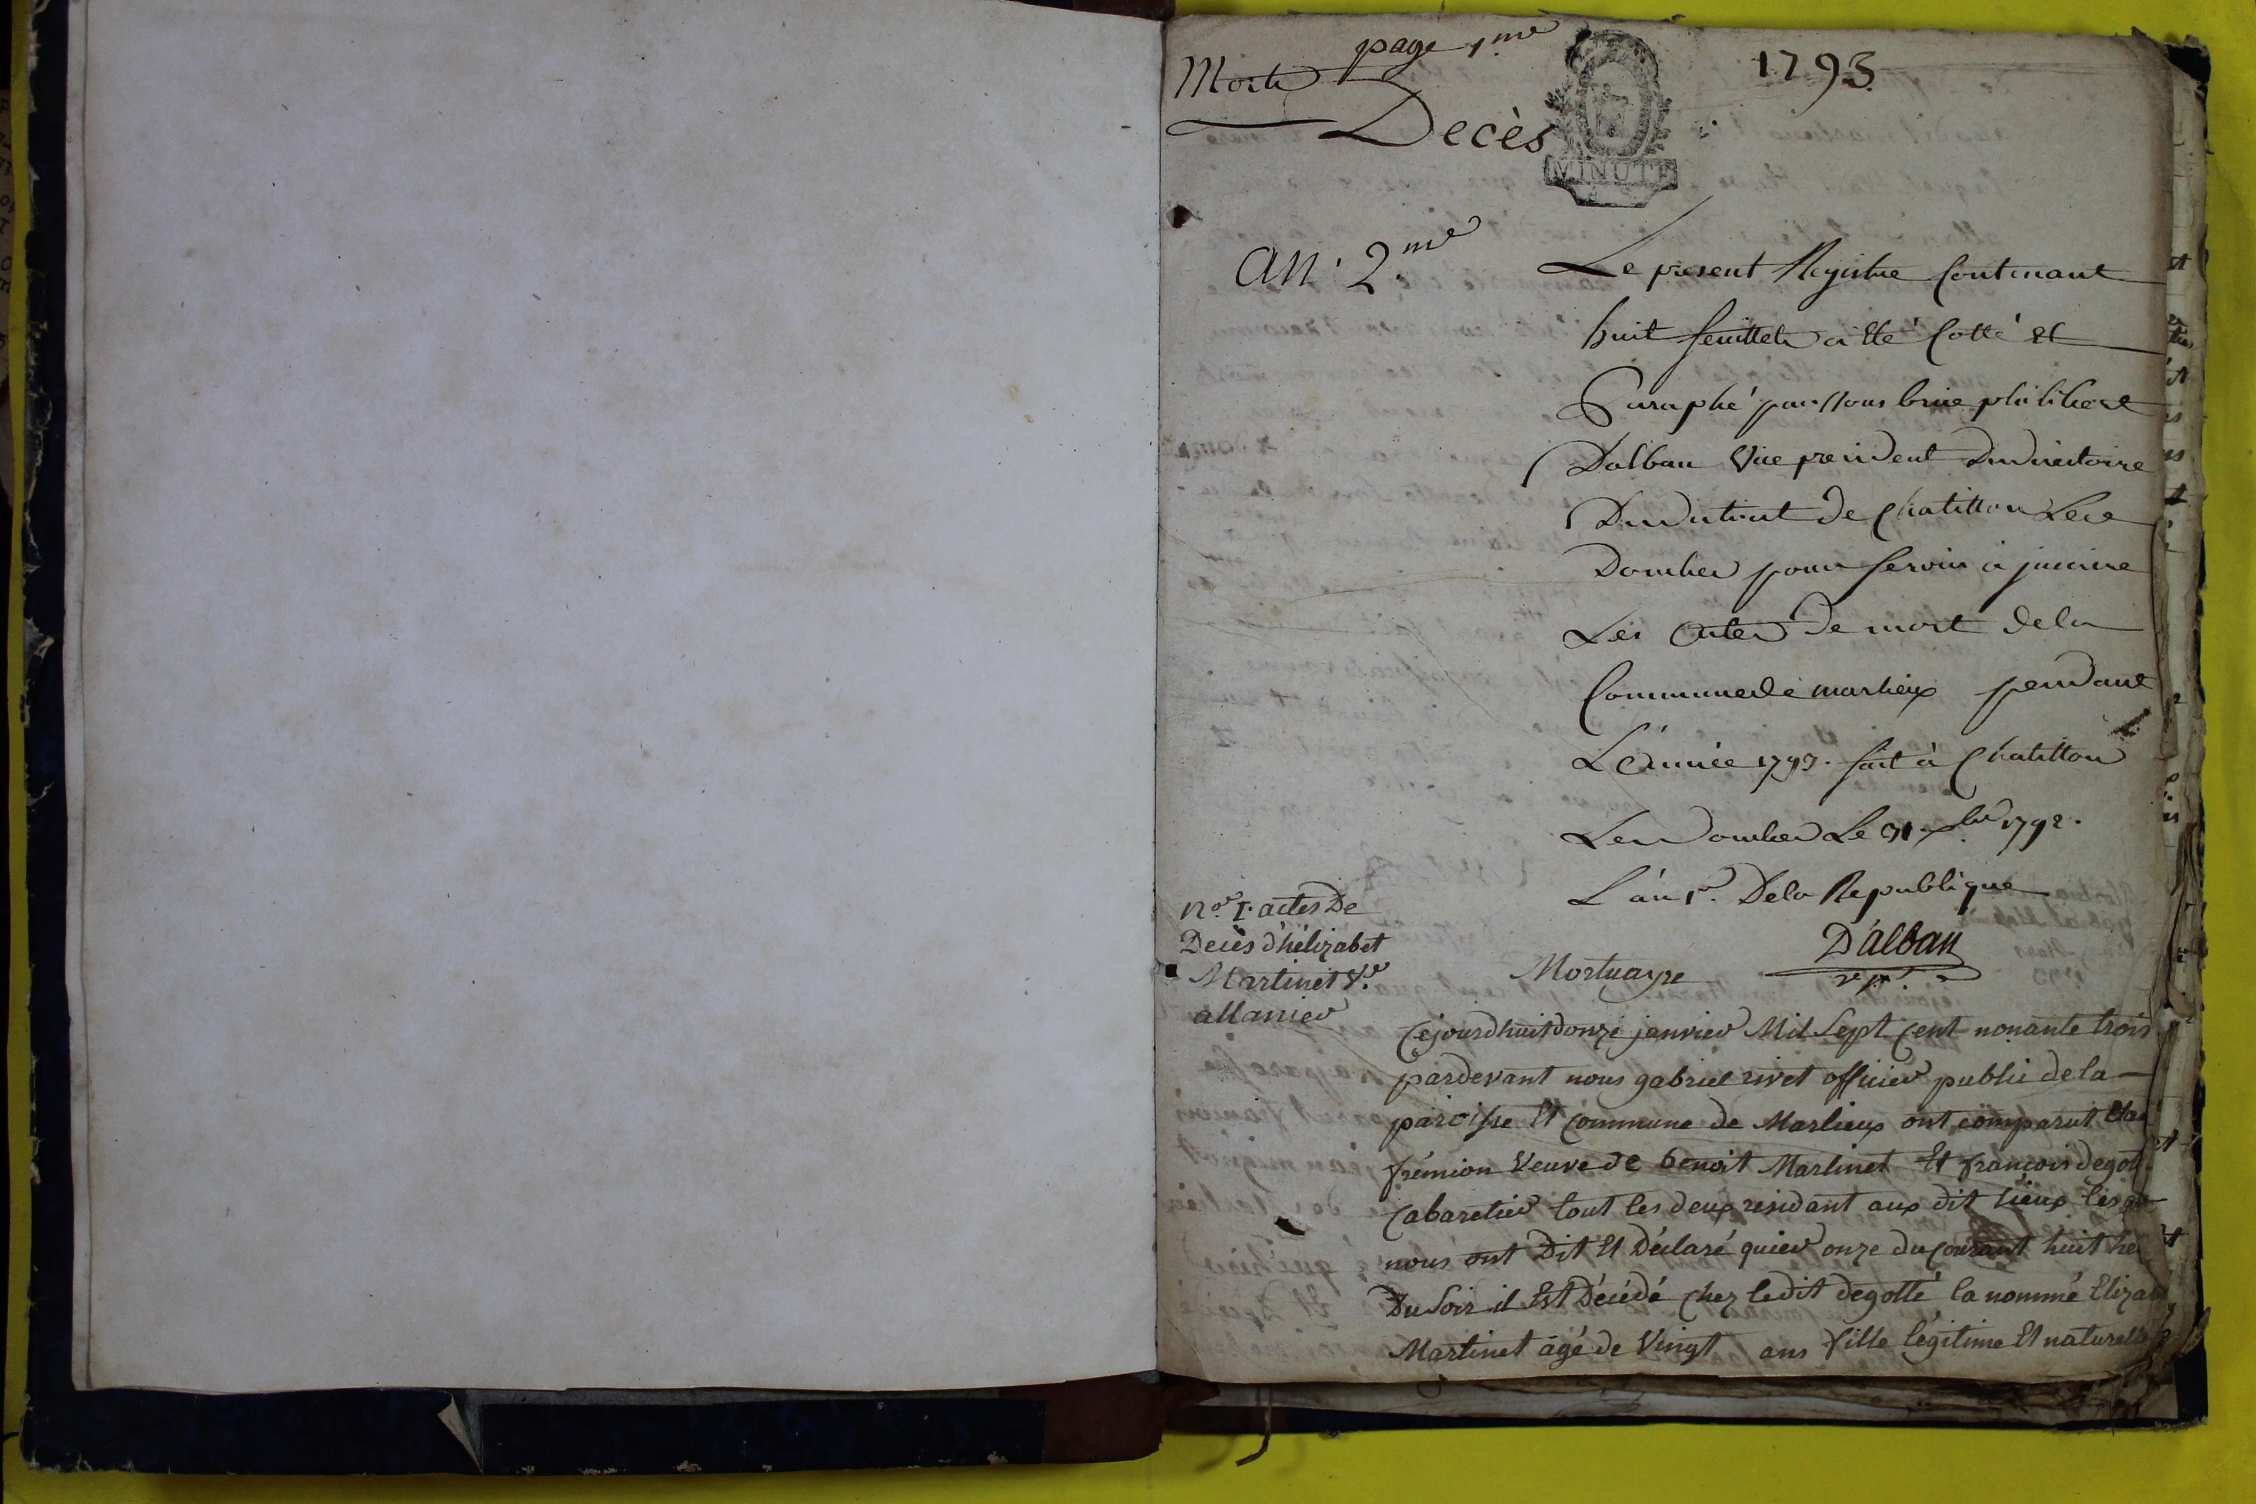 page 1.me
Morts
Decès
1793
MINUTE
an. 2.me
Le present Registre Contenant
huit feuillets a eté Cotté et
Paraphé par Nous philibert
Dalban Vice president Du directoire
Du District de Chatillon Les
Dombes pour servir à inscrire
Les actes de mort de la
Commune de marlieux pendant
L'année 1793. fait à Chatillon
Les Dombes Le 31 xbre 1792.
L'an 1er. De la Republique
D'alban
vpt.
no. I. actes De
Decès d'hélizabet
Martinet Ve.
allanier
Mortuayre
Cejourdhuit donze janvier Mil Sept Cent nonante trois
pardevant nous gabriel rivet officier public de la
paroisse Et Commune de Marlieux ont comparut
frémion Veuve de benoit Martinet Et francois degot
Cabaretier tout les deux residant aux dit lieux
nous ont Dit Et Déclaré quier onze du Courant huit he
Du Soir il Est Décédé Chez ledit degotté la nommé Elizab
Martinet âgé de Vingt ans fille légitime Et naturelle